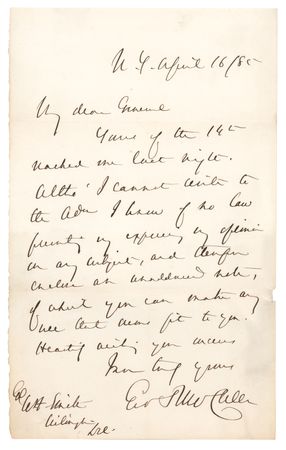 N.Y. April 16/85
My dear General
Yours of the 14th
reached me last night.
Altho' I cannot write to
the Adm I know of no law
preventing my expressing my opinion
on any subject, and therefore
enclose an unaddressed note,
of which you can make any
use that seems fit to you.
Heartily wishing you success
I am truly yours
Geo B McClellan
Gl
Smith
Wilmington
Del.